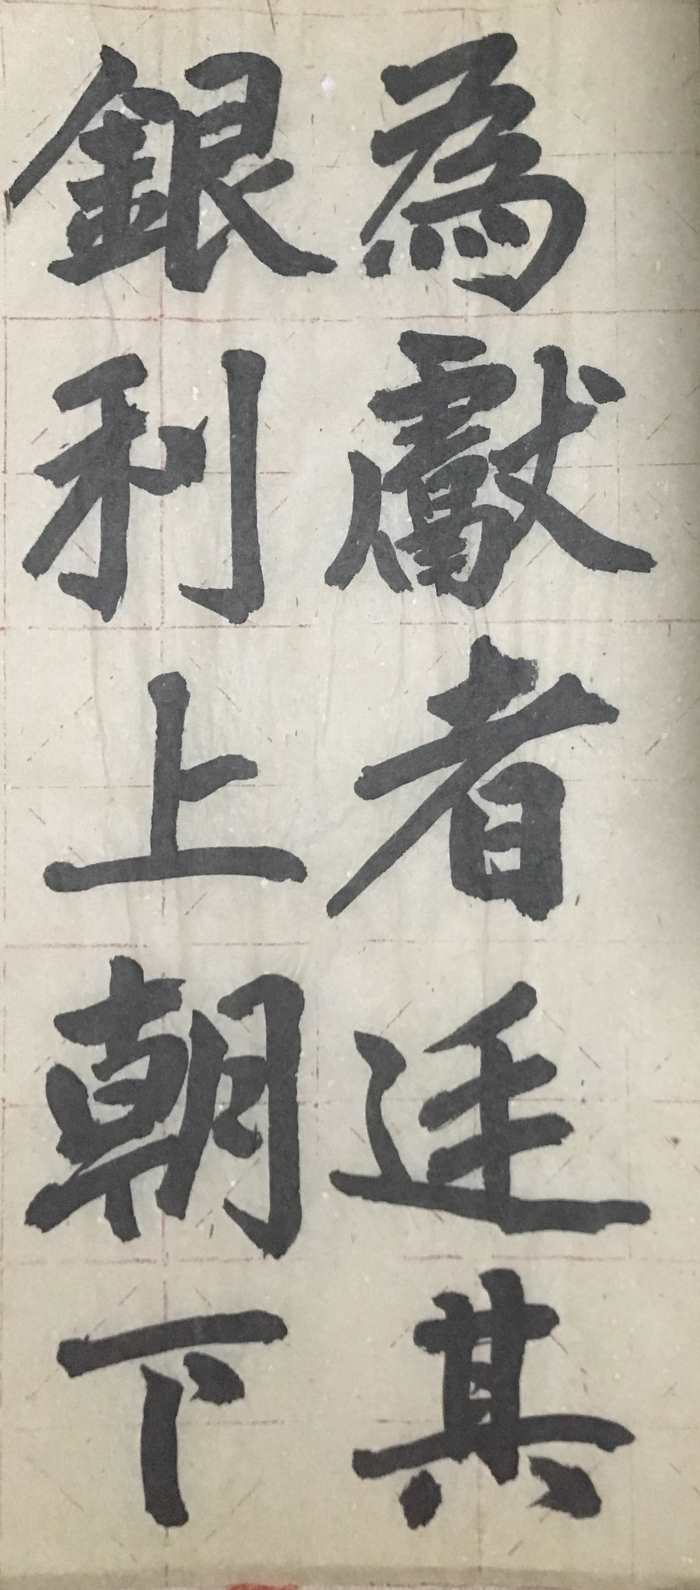 為獻者廷其
銀利上朝下